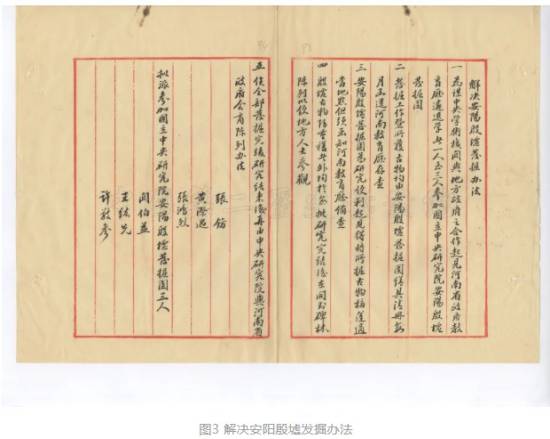 解決安陽殷墟發掘辦法
一 為謀中央學術機關與地方政府之合作起見河南省政府教
育廳遴選學者一人至三人參加國立中央研究院安陽殷墟
發掘團
二 發掘工作暨所獲古物均由安陽殷墟發掘團繕具清冊每
月函送河南教育廳存查
三 安陽殷墟發掘團為研究便利起見得將所掘古物移運適
當地點但須函知河南教育廳備查
四 殷墟古物除重複者外均於每批研究完結後在開封碑林
陳列以便地方人士參觀
五 俟全部發掘完竣研究結束後再由中央研究院與河南省
政府會商陳列辦法
張鈁
黃際遇
張鴻烈
擬派參加國立中央研究院安陽殷墟發掘團三人
關伯益
王紘先
許敬參
图3 解决安阳殷墟发掘办法